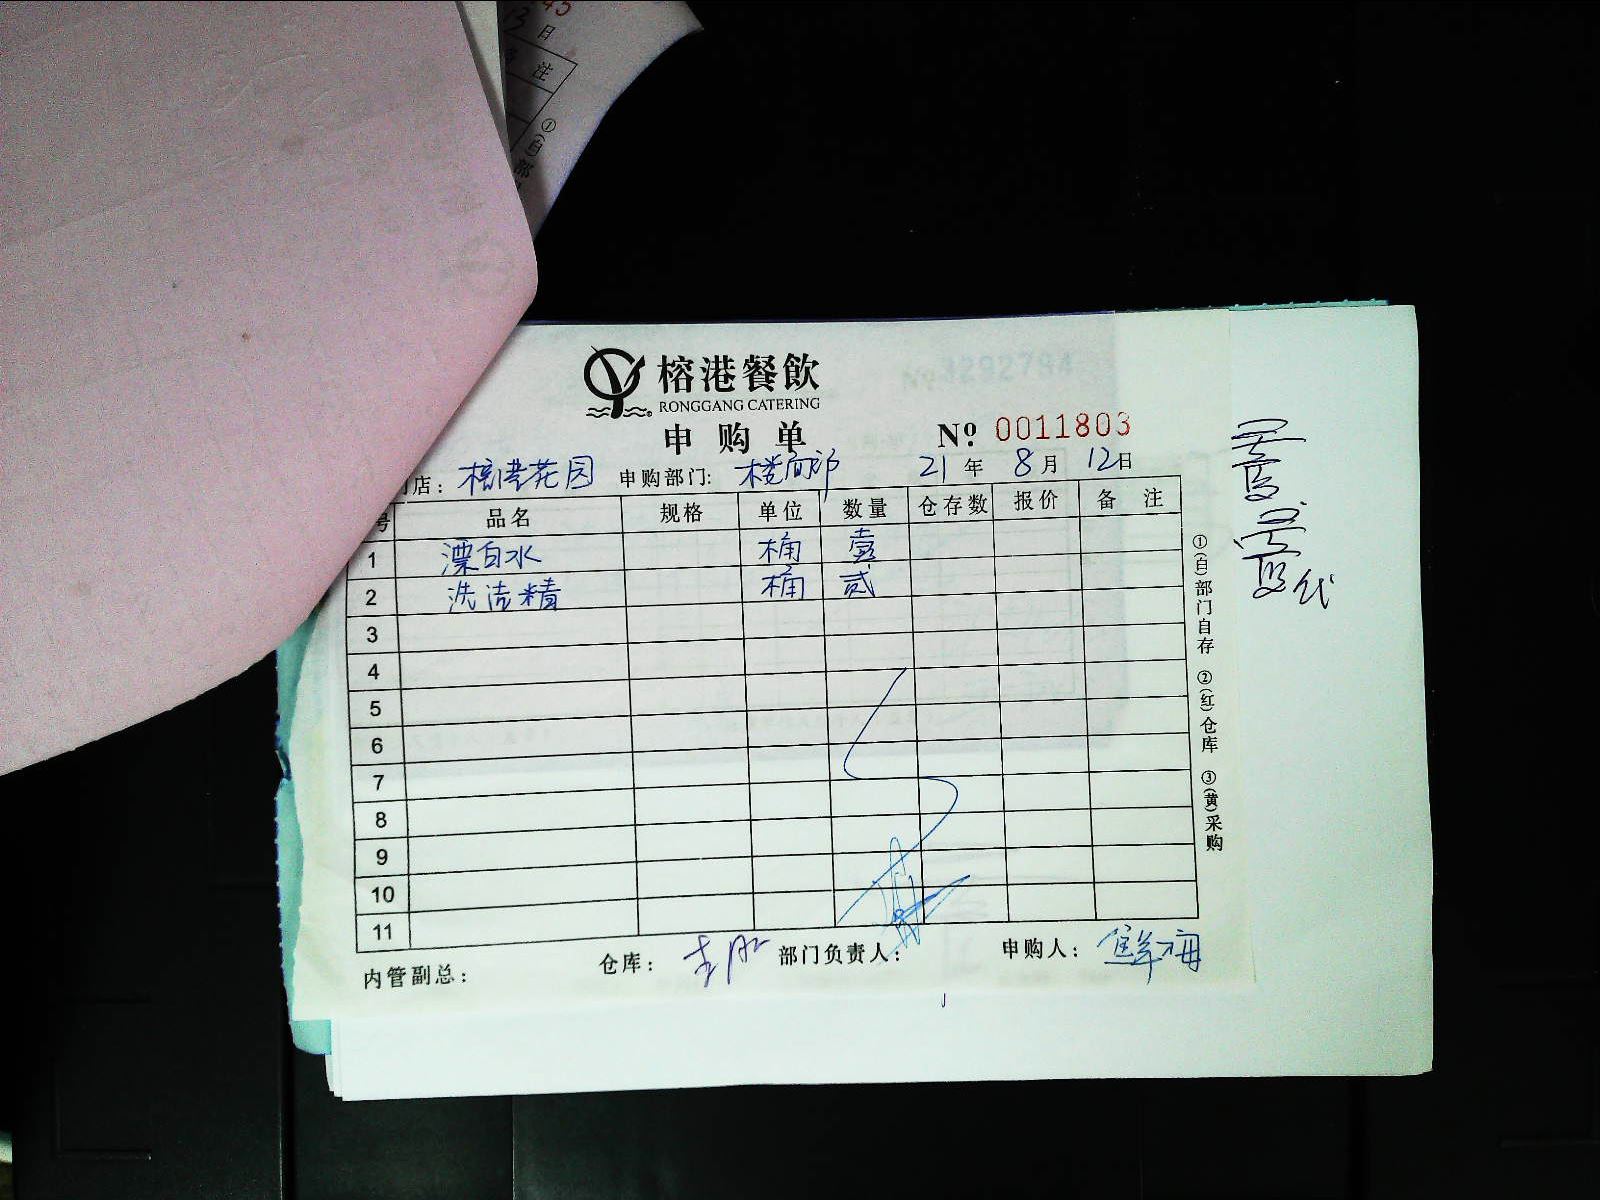 45
13日
备注
①(白)部
榕港餐飲
RONGGANG CATERING
申购单
№ 0011803
店: 榕港花园 申购部门: 楼面部 21年8月12日
号 品名 规格 单位 数量 仓存数 报价 备注
1 漂白水 桶 壹
2 洗洁精 桶 贰
3
4
5
6
7
8
9
10
11
内管副总: 仓库: 部门负责人: 申购人: 鲜梅
①(白)部门自存 ②(红)仓库 ③(黄)采购